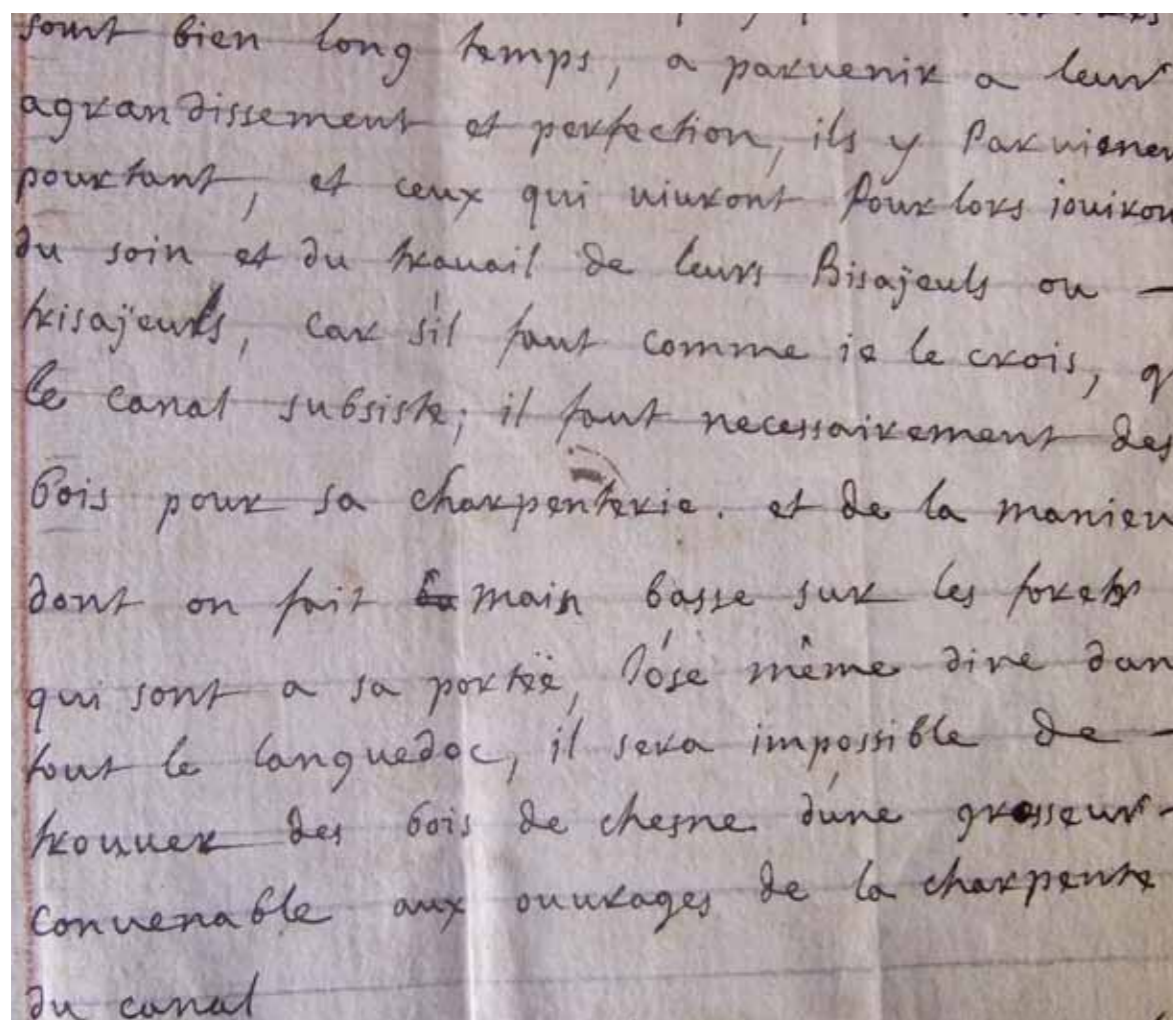 sont bien long temps, a parvenir a leur
agrandissement et perfection, ils y Parvienen
pourtant, et ceux qui vivront Pour lors jouiron
du soin et du travail de leurs Bisajeuls ou —
trisajeuls, car s'il faut comme je le crois, q
le canal subsiste; il faut necessairement des
bois pour sa charpenterie. et de la manier
dont on fait main basse sur les forets
qui sont a sa porteë, J'óse même dire dan
tout le languedoc, il sera impossible de —
trouver des bois de chesne d'une grosseur -
convenable aux ouvrages de la charpente
du canal